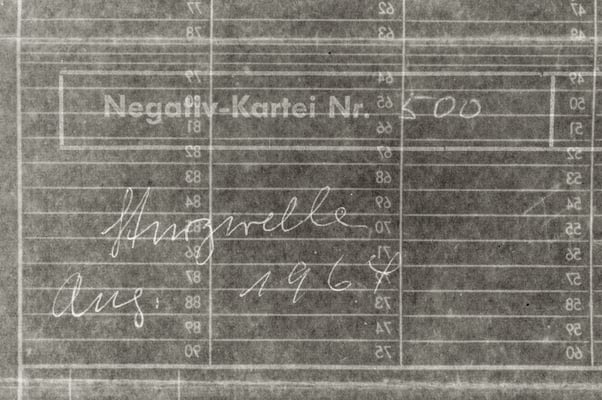 77 62 47
78 63 48
79 64 49
80 65 50
Negativ-Kartei Nr. 500
81 66 51
82 67 52
83 68 53
84 69 54
70 55
Sturzwelle
86 71 56
87 57
Aug. 1964
88 73 58
89 74 59
90 75 60